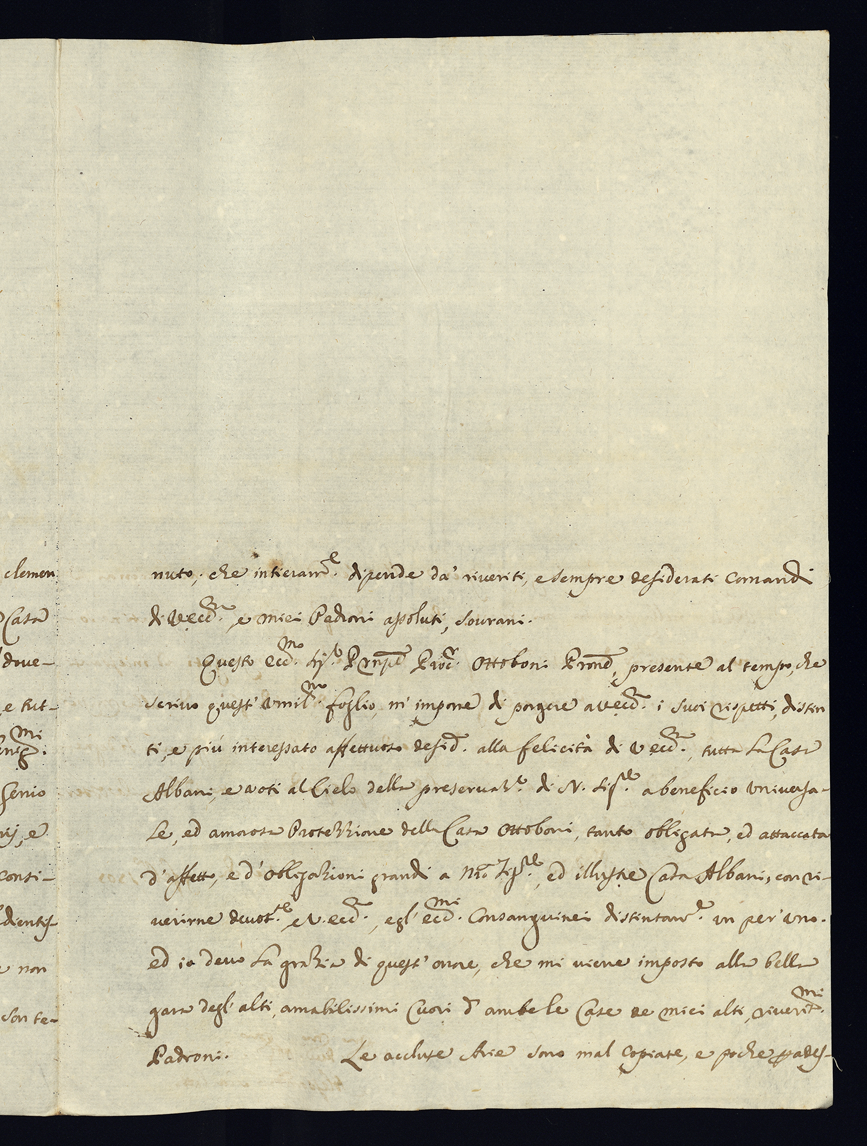 clemen
Casa
dove-
e tut-
mi
Genio
rij, e
consi-
dientis-
e non
son te-
nuto; che intieram.e dipende da' riveriti, e sempre desiderati Comandi
di V. ecc.za, e miei Padroni assoluti, sourani.
Questo ecc.mo Sig.r Prnpe Proc.r Ottoboni Prone, presente al tempo, che
scrivo quest' vmil.mo foglio, m' impone di porgere a V. ecc.za i suoi rispetti, distin
ti, e più interessato affettuoso desid.o alla felicità di V. ecc.za, tutta La Casa
Albani, e voti al Cielo della preservaz.e di N. Sig.re a beneficio vniversa-
Le, ed amorosa Protezzione della Casa Ottoboni, tanto obligata, ed attaccata
d'affetto, e d'obligazioni grandi a Nro Sig.re, ed illustre Casa Albani, con ri-
verirne devot.e, e V. ecc.za, egl' ecc.mi Consanguinei distintam.e vn per vno.
ed io devo La grazia di quest' onore, che mi viene imposto alla bella
gara degl' alti, amabilissimi Cuori d' ambe le Case de miei alti, riverit.mi
Padroni. Le accluse Arie sono mal Copiate, e poche